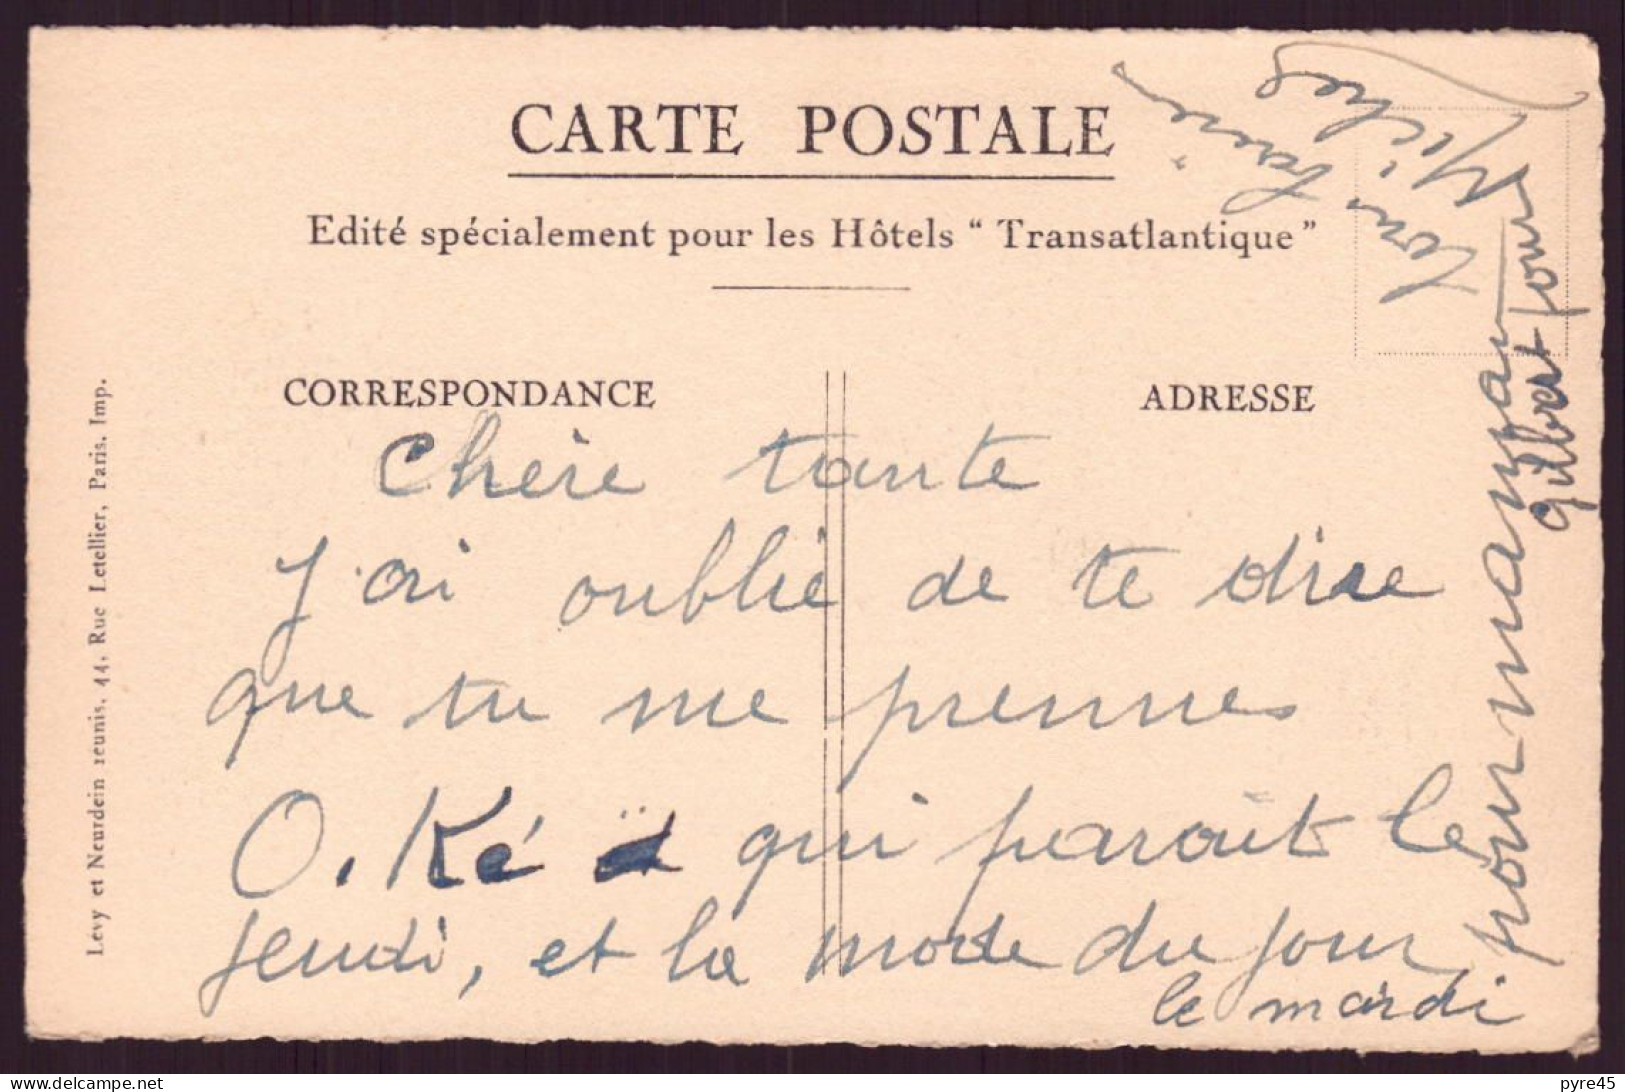 CARTE POSTALE
Edité spécialement pour les Hôtels “ Transatlantique ”
CORRESPONDANCE
ADRESSE
Chère tante
J'ai oublié de te dire
que tu me prennes
O. Ké qui parait le
jeudi, et la mode du jour
le mardi
pour maman
Gilbert pour
Levy et Neurdein réunis, 44, Rue Letellier, Paris. Imp.
Delcampe.net
pyre45